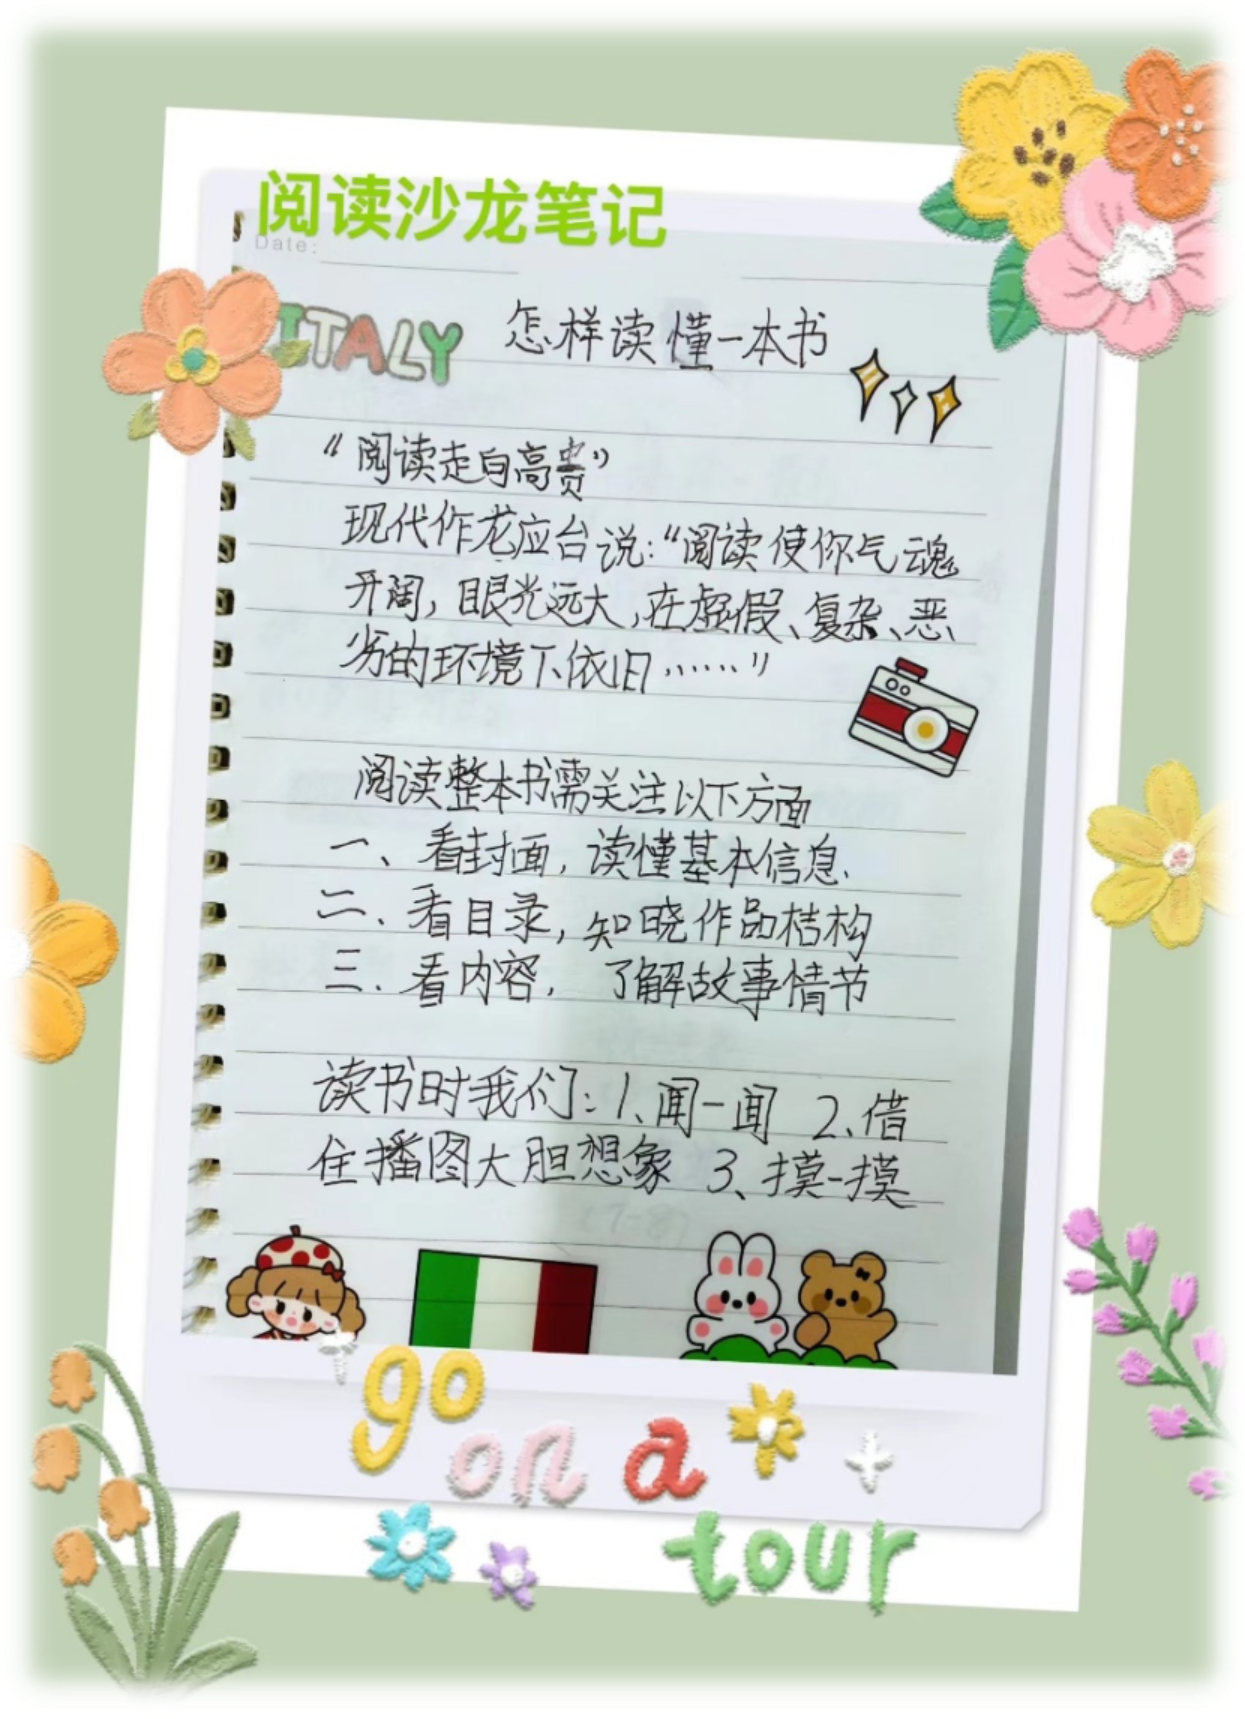 阅读沙龙笔记
Date:
ITALY 怎样读懂一本书
“阅读走向高贵”
现代作龙应台说:“阅读使你气魂
开阔,眼光远大,在虚假、复杂、恶
劣的环境下依旧……”
阅读整本书需关注以下方面
一、看封面,读懂基本信息、
二、看目录,知晓作品桔构
三、看内容,了解故事情节
读书时我们:1、闻一闻 2、借
住播图大胆想象 3、摸一摸
go
on a
tour